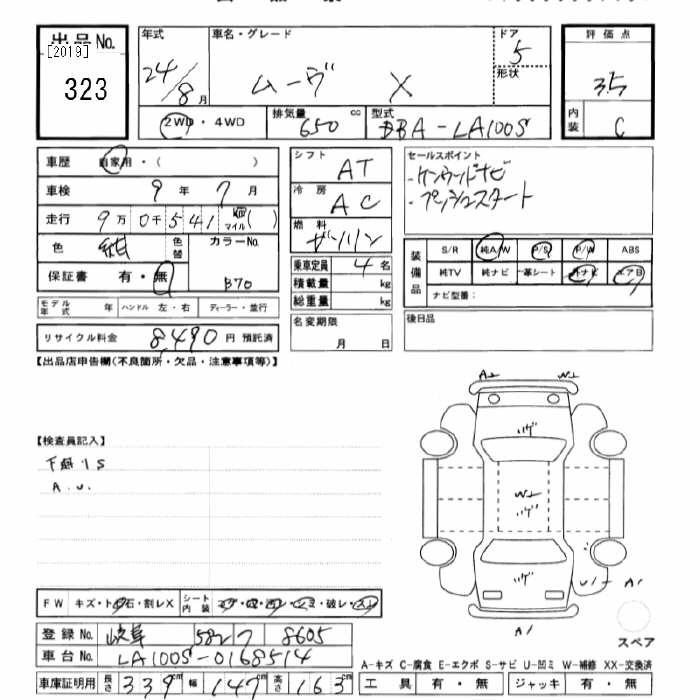 出品No.
[2019]
323
年式
24/8月
車名・グレード
ムーヴ X
ドア
5
形状
評価点
3.5
内装
C
2WD・4WD
排気量
650 cc
型式
DBA-LA100S
車歴 自家用・( )
車検 9年 7月
走行 9万0千541 km マイル( )
色
色替
カラーNo.
B70
保証書 有・無
モデル年式 年 ハンドル 左・右 ディーラー・並行
リサイクル料金 8,490 円 預託済
シフト
AT
冷房
AC
燃料
ガソリン
乗車定員 4名
積載量 kg
総重量 kg
名変期限
月 日
セールスポイント
・ケンウッドナビ
・プッシュスタート
装備品
S/R 純A/W P/S P/W ABS
純TV 純ナビ 革シート 外ナビ エアB
ナビ型番:
後日品
【出品店申告欄(不良箇所・欠品・注意事項等)】
【検査員記入】
下廻りS
A.U.
FW キズ・ト・石・割レX
シート内装
登録No. 岐阜 582 7 8605
車台No. LA100S-0168514
車庫証明用 長さ 339cm 幅 147cm 高さ 163cm
スペア
A-キズ C-腐食 E-エクボ S-サビ U-凹ミ W-補修 XX-交換済
工具 有・無 ジャッキ 有・無